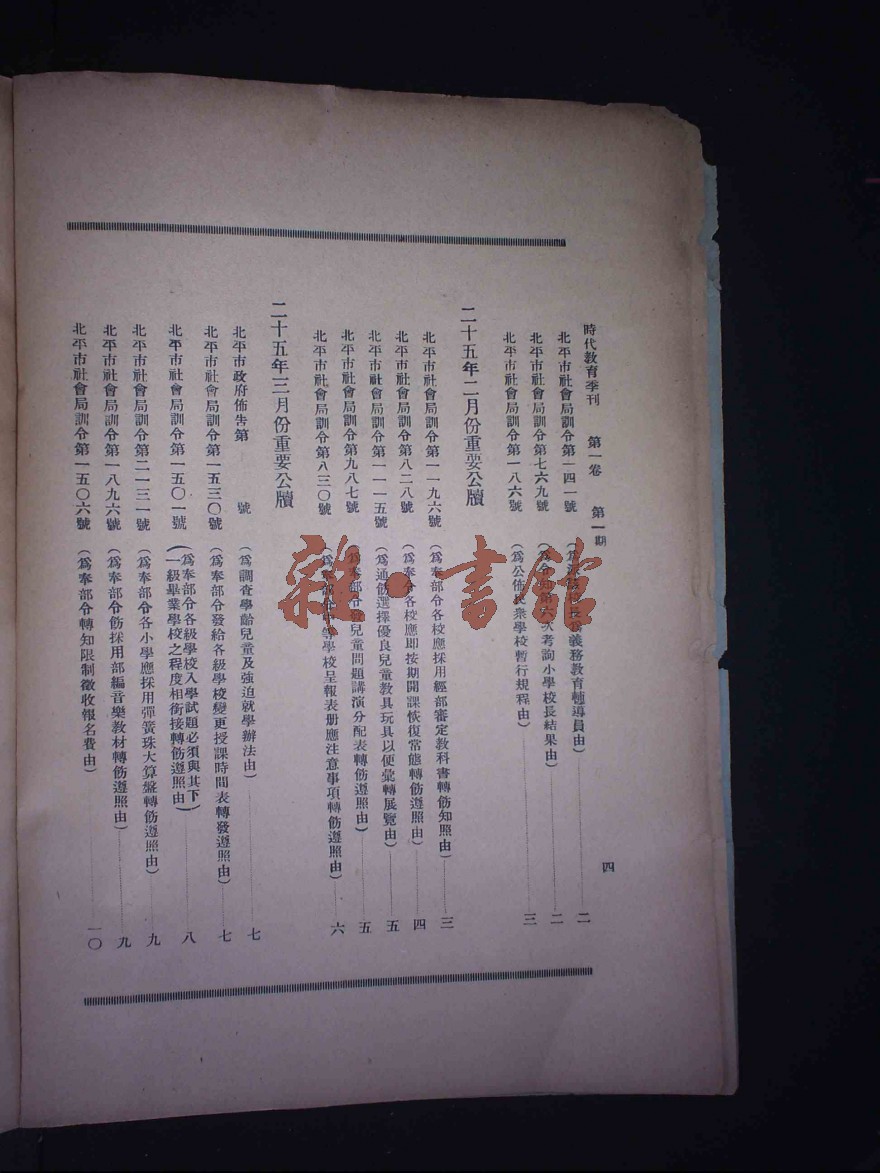 時代教育季刊 第一卷 第一期 四
北平市社會局訓令第一四一號 義務教育輔導員由)二
北平市社會局訓令第七六九號 考詢小學校長結果由)二
北平市社會局訓令第一八六號 (爲公佈民衆學校暫行規程由)三
二十五年二月份重要公牘
北平市社會局訓令第一一九六號 (爲奉部令各校應採用經部審定教科書轉飭知照由)三
北平市社會局訓令第八二八號 (爲奉令各校應即按期開課恢復常態轉飭遵照由)四
北平市社會局訓令第一一一五號 (爲通飭選擇優良兒童教具玩具以便彙轉展覽由)五
北平市社會局訓令第九八七號 (爲奉部令發兒童問題講演分配表轉飭遵照由)五
北平市社會局訓令第八三〇號 (爲奉部令中等學校呈報表册應注意事項轉飭遵照由)六
二十五年三月份重要公牘
北平市政府佈告第 號 (爲調查學齡兒童及強迫就學辦法由)七
北平市社會局訓令第一五三〇號 (爲奉部令發給各級學校變更授課時間表轉發遵照由)七
北平市社會局訓令第一五〇一號 (爲奉部令各級學校入學試題必須與其下一級畢業學校之程度相銜接轉飭遵照由)八
北平市社會局訓令第二一三一號 (爲奉部令各小學應採用彈簧珠大算盤轉飭遵照由)九
北平市社會局訓令第一八九六號 (爲奉部令飭採用部編音樂教材轉飭遵照由)九
北平市社會局訓令第一五〇六號 (爲奉部令轉知限制徵收報名費由)一〇
雜·書館